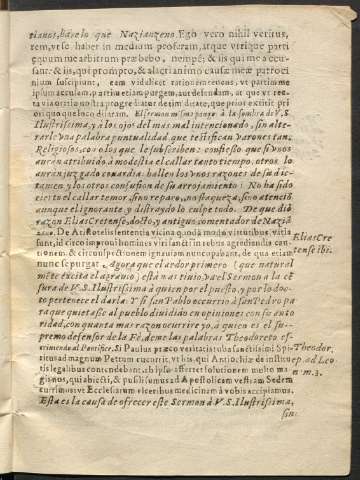 tianos, harélo que Nazianzeno. Ego vero nihil veritus,
rem, vt se haber in medium proferam, atque vtrique parti
equum me arbitrum præbebo, nempè, & iis qui me accu-
sant: & iis, qui prompto, & alacri animo causæ meæ patroci
nium suscipiunt, eam videlicet rationem tenens, vt partim me
ipsum acculem, partim etiam purgem, aut defendam, at que vt rec-
ta via oratio nostra progrediatur de timiditate, que prior extitit pri
ori quoque loco dicturam. El sermon mismo pongo à la sombra de V. S.
Ilustrissima, y à los ojos del mas mal intencionado, sin alte-
rarle vna palabra puntualidad que testifican Varones tan
Religiosos, con los que le subscriben: confiesso que vnos
auran atribuido à modestia el callar tanto tiempo, otros lo
auran juzgado couardia: hallen los vnos razones de su dic-
tamen y los otros confusion de su arrojamiento: No ha sido
cierto el callar temor, sino reparo, no flaqueza, sino atencio
aunque el ignorante, y distraydo lo culpe todo. De que diò
razon Elias Cretense, docto, y antiguo comentador de Nazia
zeno. De Aristotelis sententia vicina quodā modo virtutibus vitia
sunt, id circo improui homines viri sancti in rebus agrediendis cau-
tionem, & circunspectionem ignauiam nuncupabant, de qua etiam
nunc se purgat. Agora que el ardor primero (que natural
mēte excita el agrauio) està mas tiuio, va el Sermon a la cē
sura de V. S. Ilustrissima à quien por el puesto, y por lo doc-
to pertenece el darla: Y si san Pablo ocurrio à san Pedro pa
ra que quietasse al pueblo diuidido en opiniones con su auto
ridad, con quanta mas razon ocurrirè yo, à quien es el su-
premo defensor de la Fè, deme las palabras Theodoreto es-
criuiendo al Pontifice. Si Paulus præco veritatis tuba Sanctissimi Spi-
ritus ad magnum Petrum cucurrit, vt his, qui Antiochiæ de institu
tis legalibus contendebant, ab ipso afferret solutionem multo ma
gis nos, qui abiecti, & pusilli sumus ad Apostolicam vestram Sedem
currimus vt Ecclesiarum vlceribus medicinam à vobis accipiamus.
Esta es la causa de ofrecer este Sermon à V. S. Ilustrissima,
sin
Elias Cre
tense ibi.
Theodor.
ep. ad Leo
n m. 3.